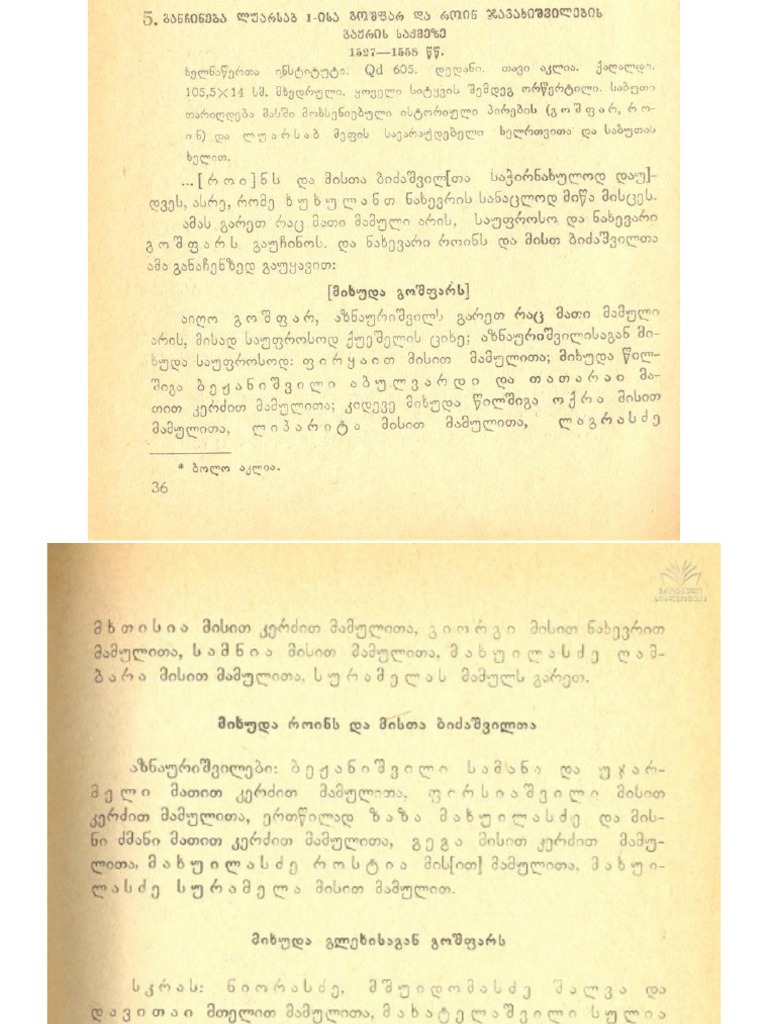 5. განჩინება ლუარსაბ I-ისა გოშფარ და როინ ჯავახიშვილების
გაყრის საქმეზე
1527—1558 წწ.
ხელნაწერთა ინსტიტუტი: Qd 605. დედანი. თავი აკლია. ქაღალდი.
105,5×14 სმ. მხედრული. ყოველი სიტყვის შემდეგ ორწერტილი. საბუთი
თარიღდება მასში მოხსენიებული ისტორიული პირების (გოშფარ, რო-
ინ) და ლუარსაბ მეფის სავარაუდებელი ხელრთვითა და საბუთის
ხელით.
...[როი]ნს და მისთა ბიძაშვილ[თა საჭირნახულოდ დაუ]-
დვეს, ასრე, რომე ხუხულანთ ნახევრის სანაცლოდ მიწა მისცეს.
ამას გარეთ რაც მათი მამული არის, საუფროსო და ნახევარი
გოშფარს გაუჩინოს. და ნახევარი როინს და მისთ ბიძაშვილთა
ამა განაჩენზედ გაუყავით:
[მიხუდა გოშფარს]
აიღო გოშფარ, აზნაურიშვილს გარეთ რაც მათი მამული
არის, მისად საუფროსოდ ქუეშელის ციხე; აზნაურიშვილისაგან მი-
ხუდა საუფროსოდ: ფირყაით მისით მამულითა; მიხუდა წილ-
შიგა ბეჟანიშვილი აბულვარდი და თათარაი მა-
თით კერძით მამულითა; კიდევე მიხუდა წილშიგა ოქრა მისით
მამულითა, ლიპარიტა მისით მამულითა, ლაგრასძე
* ბოლო აკლია.
36
მხთისია მისით კერძით მამულითა, გიორგი მისით ნახევრით
მამულითა, სამნია მისით მამულითა, მახუილასძე ღამ-
ბარა მისით მამულითა, სურამელას მამულს გარეთ.
მიხუდა როინს და მისთა ბიძაშვილთა
აზნაურიშვილები: ბეჟანიშვილი სამანა და უჯარ-
მელი მათით კერძით მამულითა, ფირსიაშვილი მისით
კერძით მამულითა, ერთწილად ზაზა მახუილასძე და მის-
ნი ძმანი მათით კერძით მამულითა, გეგა მისით კერძით მამუ-
ლითა, მახუილასძე როსტია მის[ით] მამულითა, მახუი-
ლასძე სურამელა მისით მამულით.
მიხუდა გლეხისაგან გოშფარს
სკრას: ნიორასძე, მშუიდომასძე შალვა და
დავითაი მთელით მამულითა, მახატელაშვილი სულია